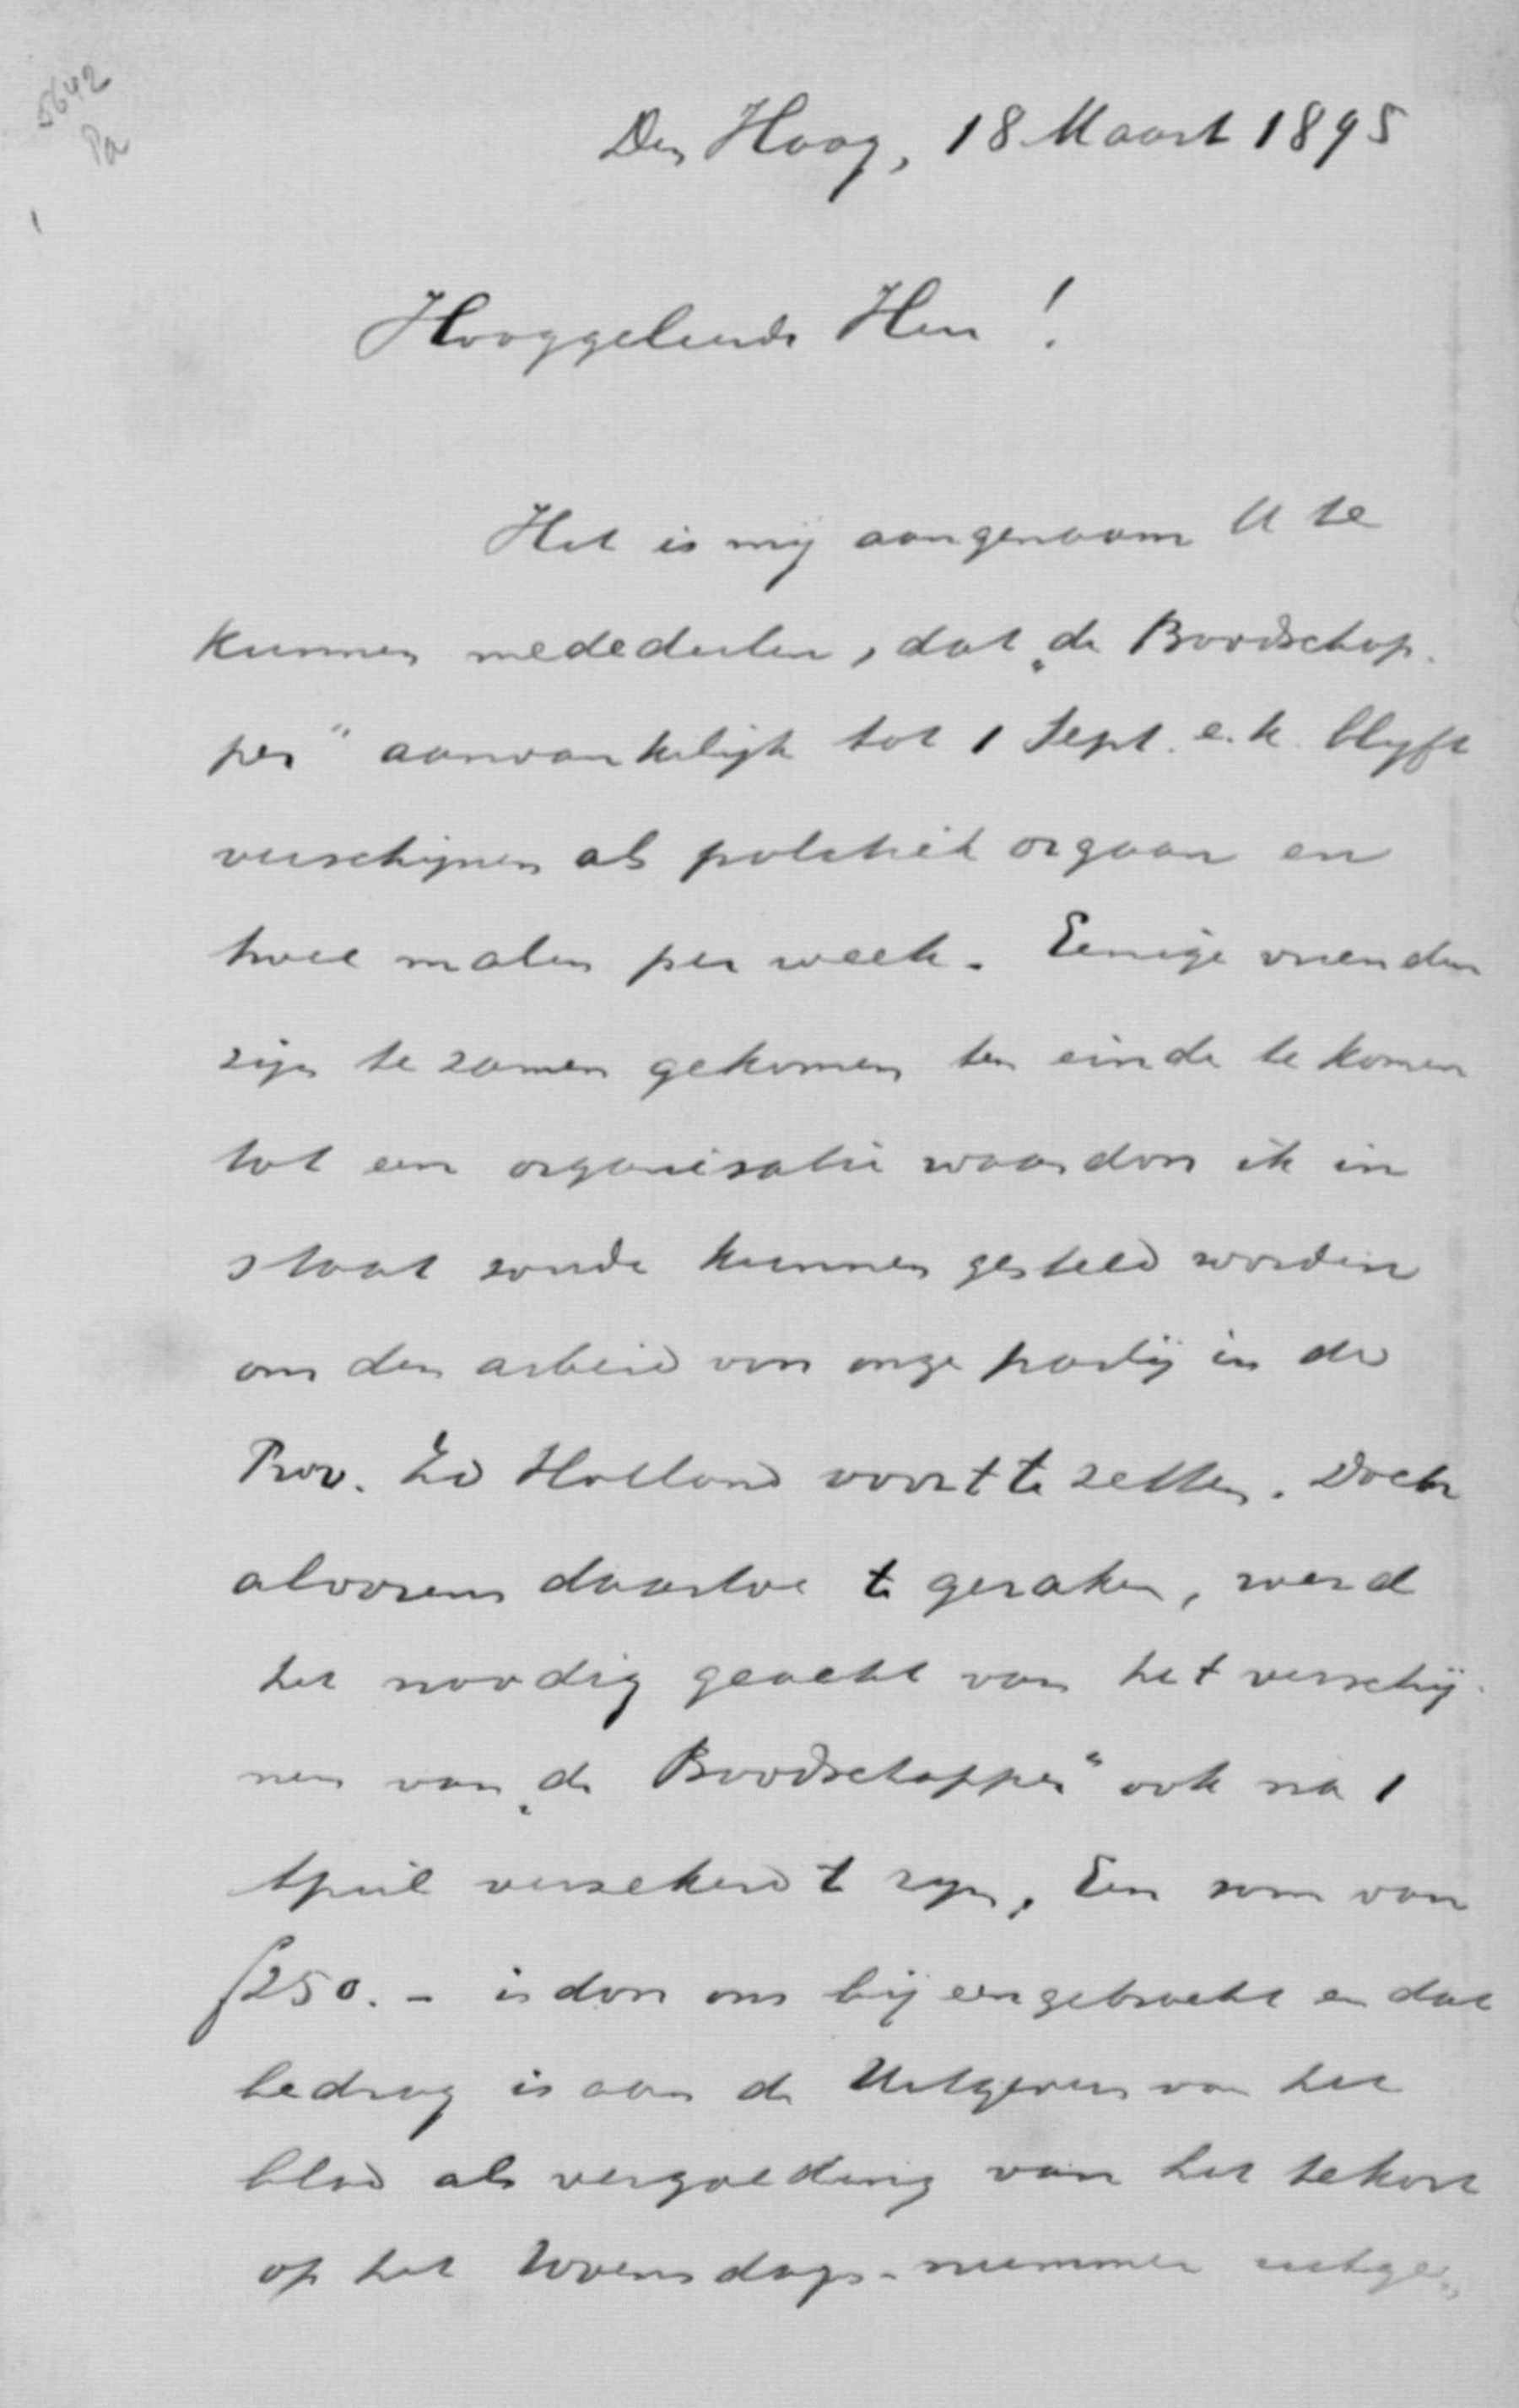 5642
Pa
Den Haag, 18 Maart 1895
Hooggeleerde Heer!
Het is mij aangenaam U te
kunnen mededeelen, dat „de Boodschap-
per" aanvankelijk tot 1 Sept. e.k. blijft
verschijnen als politiek orgaan en
twee malen per week. Eenige vrienden
zijn te zamen gekomen ten einde te komen
tot een organisatie waardoor ik in
staat zoude kunnen gesteld worden
om den arbeid van onze partij in de
Prov. Zd Holland voort te zetten. Doch
alvorens daartoe te geraken, werd
het noodig geacht van het verschij-
nen van „de Boodschapper" ook na 1
April verzekerd te zijn. Een som van
f250.- is door ons bijeengebracht en dat
bedrag is aan de Uitgevers van het
blad als vergoeding van het tekort
op het Woensdags-nummer uitge-